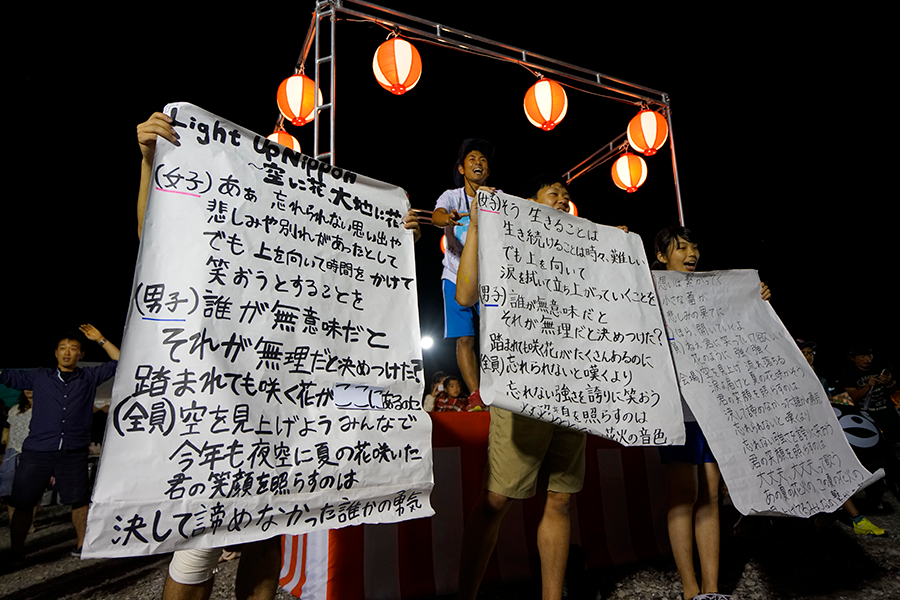 Light Up Nippon
〜空に花 大地に花〜
(女子)あぁ 忘れられない思い出や
悲しみや別れがあったとして
でも上を向いて時間をかけて
笑おうとすることを
(男子)誰が無意味だと
それが無理だと決めつけた?
踏まれても咲く花がここにあるのに
(全員)空を見上げよう みんなで
今年も夜空に夏の花咲いた
君の笑顔を照らすのは
決して諦めなかった誰かの勇気
(女子)そう 生きることは
生き続けることは時々、難しい
でも上を向いて
涙を拭いて立ち上がっていくことを
(男子)誰が無意味だと
それが無理だと決めつけた?
踏まれても咲く花がたくさんあるのに
(全員)忘れられないと嘆くより
忘れない強さを誇りに笑おう
照らすのは
花火の音色
小さな蕾が
悲しみの果てに
空を見上げ
忘れられないと嘆くより
忘れない強さを
君の笑顔を照らすのは
大丈夫、大丈夫と